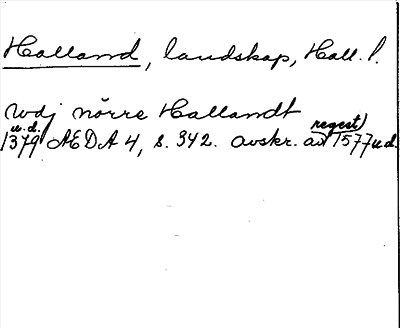 Halland, landskap, Hall. l.
wdj nörre Hallandt
1379 u.d. ÆDA 4, s. 342. avskr. av regest) 1577 u.d.